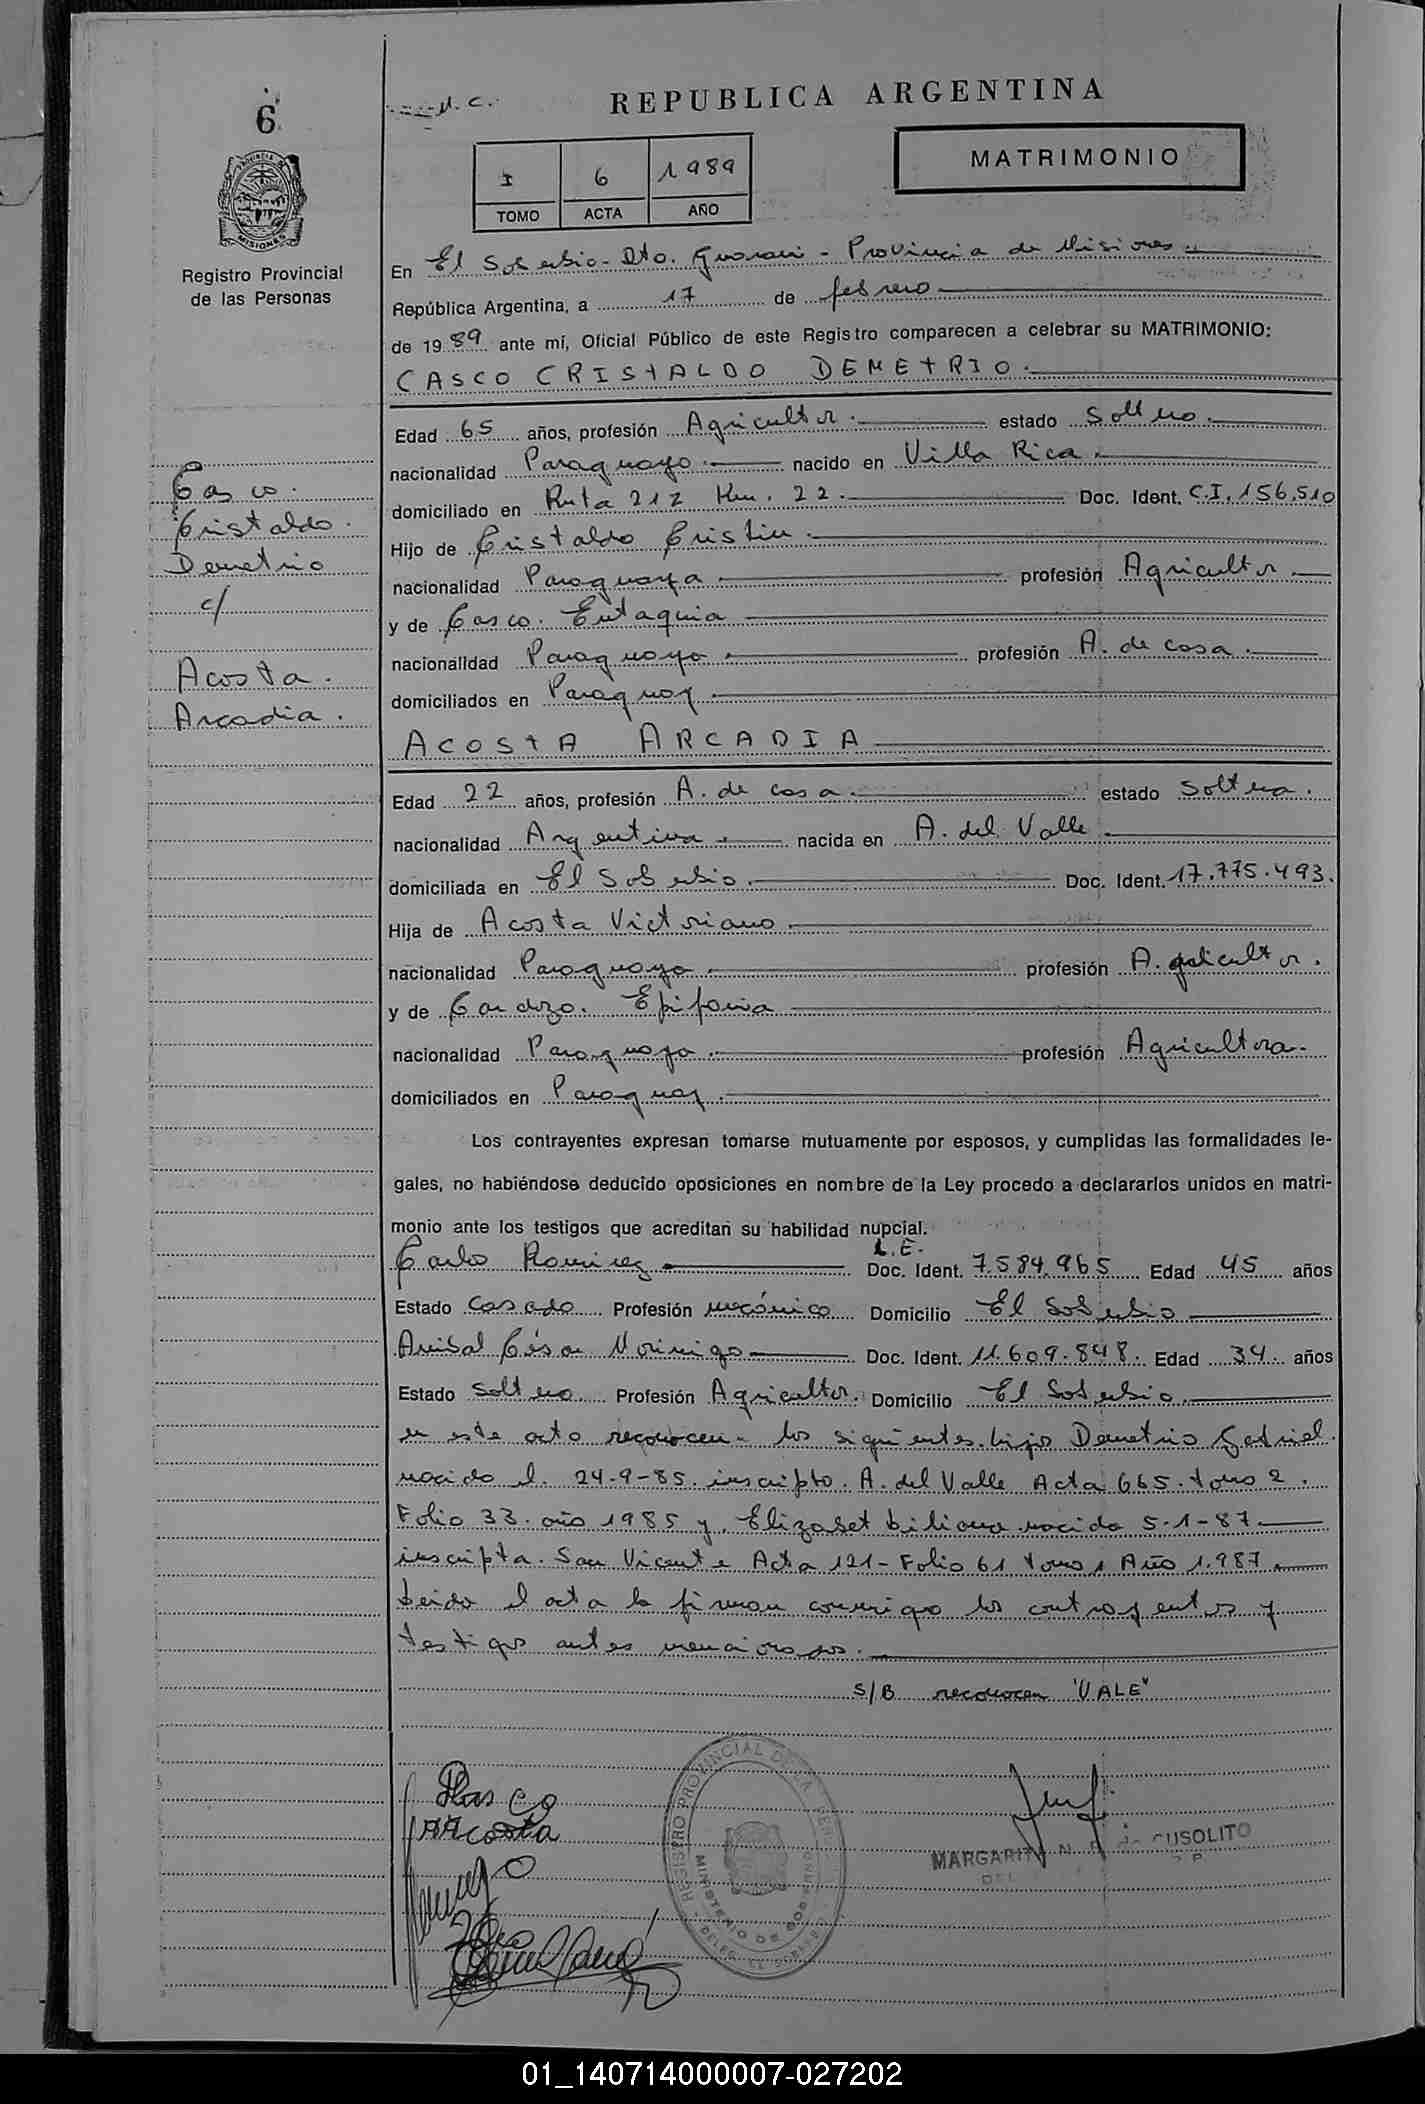 6
U.C.
REPUBLICA ARGENTINA
MATRIMONIO
I 6 1989
TOMO ACTA AÑO
PROVINCIA DE MISIONES
Registro Provincial
de las Personas
En El Soberbio - Dto. Guarani - Provincia de Misiones
República Argentina, a 17 de febrero
de 1989 ante mí, Oficial Público de este Registro comparecen a celebrar su MATRIMONIO:
CASCO CRISTALDO DEMETRIO.
Edad 65 años, profesión Agricultor. estado Soltero.
nacionalidad Paraguayo. nacido en Villa Rica.
domiciliado en Ruta 212 Km. 22. Doc. Ident. C.I. 156.510
Hijo de Cristaldo
nacionalidad Paraguaya profesión Agricultor
y de Casco. Eutaquia
nacionalidad Paraguaya profesión A. de casa.
domiciliados en Paraguay.
Casco.
Cristaldo.
Demetrio
c/
Acosta.
Arcadia.
ACOSTA ARCADIA
Edad 22 años, profesión A. de casa. estado Soltera.
nacionalidad Argentina. nacida en A. del Valle.
domiciliada en El Soberbio. Doc. Ident. 17.775.493.
Hija de Acosta Victoriano
nacionalidad Paraguayo. profesión A.
y de Cardozo. Epifania
nacionalidad Paraguaya. profesión Agricultora.
domiciliados en Paraguay.
Los contrayentes expresan tomarse mutuamente por esposos, y cumplidas las formalidades le-
gales, no habiéndose deducido oposiciones en nombre de la Ley procedo a declararlos unidos en matri-
monio ante los testigos que acreditan su habilidad nupcial.
Carlos Ramirez L.E. Doc. Ident. 7.584.965 Edad 45 años
Estado casado Profesión mecánico Domicilio El Soberbio
Anibal César Doc. Ident. 11.609.848. Edad 34. años
Estado soltero. Profesión Agricultor. Domicilio El Soberbio.
en este acto reconocen los siguientes hijos Demetrio Gabriel.
nacido el. 24-9-85. inscripto. A. del Valle Acta 665. tomo 2.
Folio 33. año 1985 y. Elizabet Liliana nacida 5-1-87.
inscripta. San Vicente Acta 121 - Folio 61 tomo 1 Año 1.987.
Leida el acta la firman conmigo los contrayentes y
testigos antes mencionados.
S/B reconocen "VALE"
Casco
A Acosta
REGISTRO PROVINCIAL DE LAS
MINISTERIO DE GOBIERNO
MARGARITA N. de CUSOLITO
01_140714000007-027202